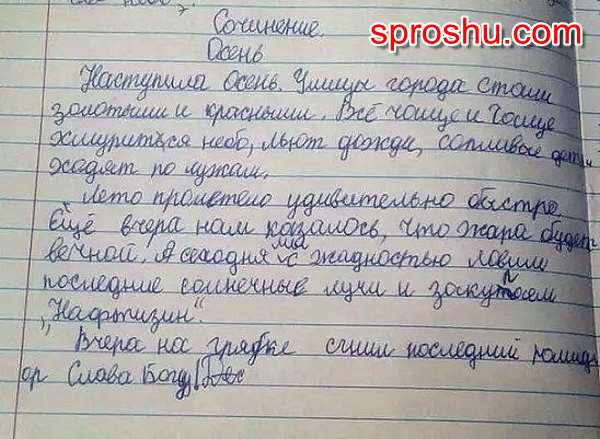 sproshu.com
Сочинение.
Осень
Наступила осень. Улицы города стали
золотыми и красными. Всё чаще и чаще
хмуриться небо, льют дожди, сопливые дети
ходят по лужам.
Лето пролетело удивительно быстро.
Ещё вчера нам казалось, что жара будет
вечной. А сегодня мы с жадностью ловим
последние солнечные лучи и закупаем
"Нафтизин".
Вчера на грядке сгнил последний помид
ор Слава Богу